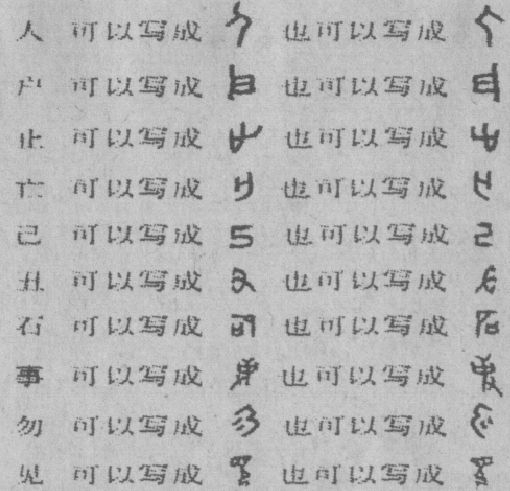 人 可以写成 也可以写成
户 可以写成 也可以写成
止 可以写成 也可以写成
亡 可以写成 也可以写成
己 可以写成 也可以写成
丑 可以写成 也可以写成
石 可以写成 也可以写成
事 可以写成 也可以写成
勿 可以写成 也可以写成
见 可以写成 也可以写成